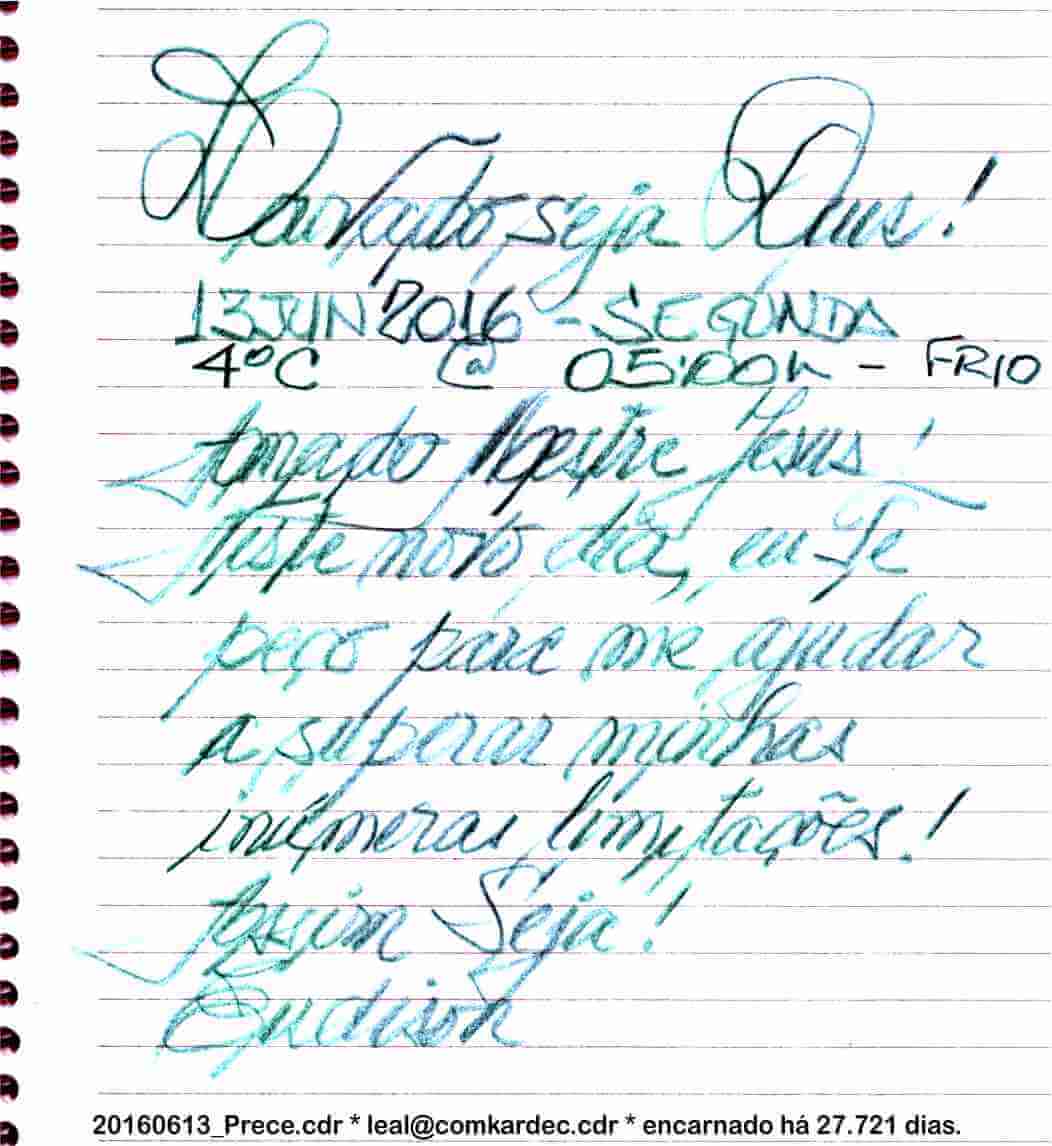 Louvado seja Deus!
13JUN2016 - SEGUNDA
4ºC @ 05:00h - FRIO
Amado Mestre Jesus!
Neste novo dia, eu Te
peço para me ajudar
a superar minhas
inúmeras limitações!
Assim Seja!
Eudison
20160613_Prece.cdr * leal@comkardec.cdr * encarnado há 27.721 dias.